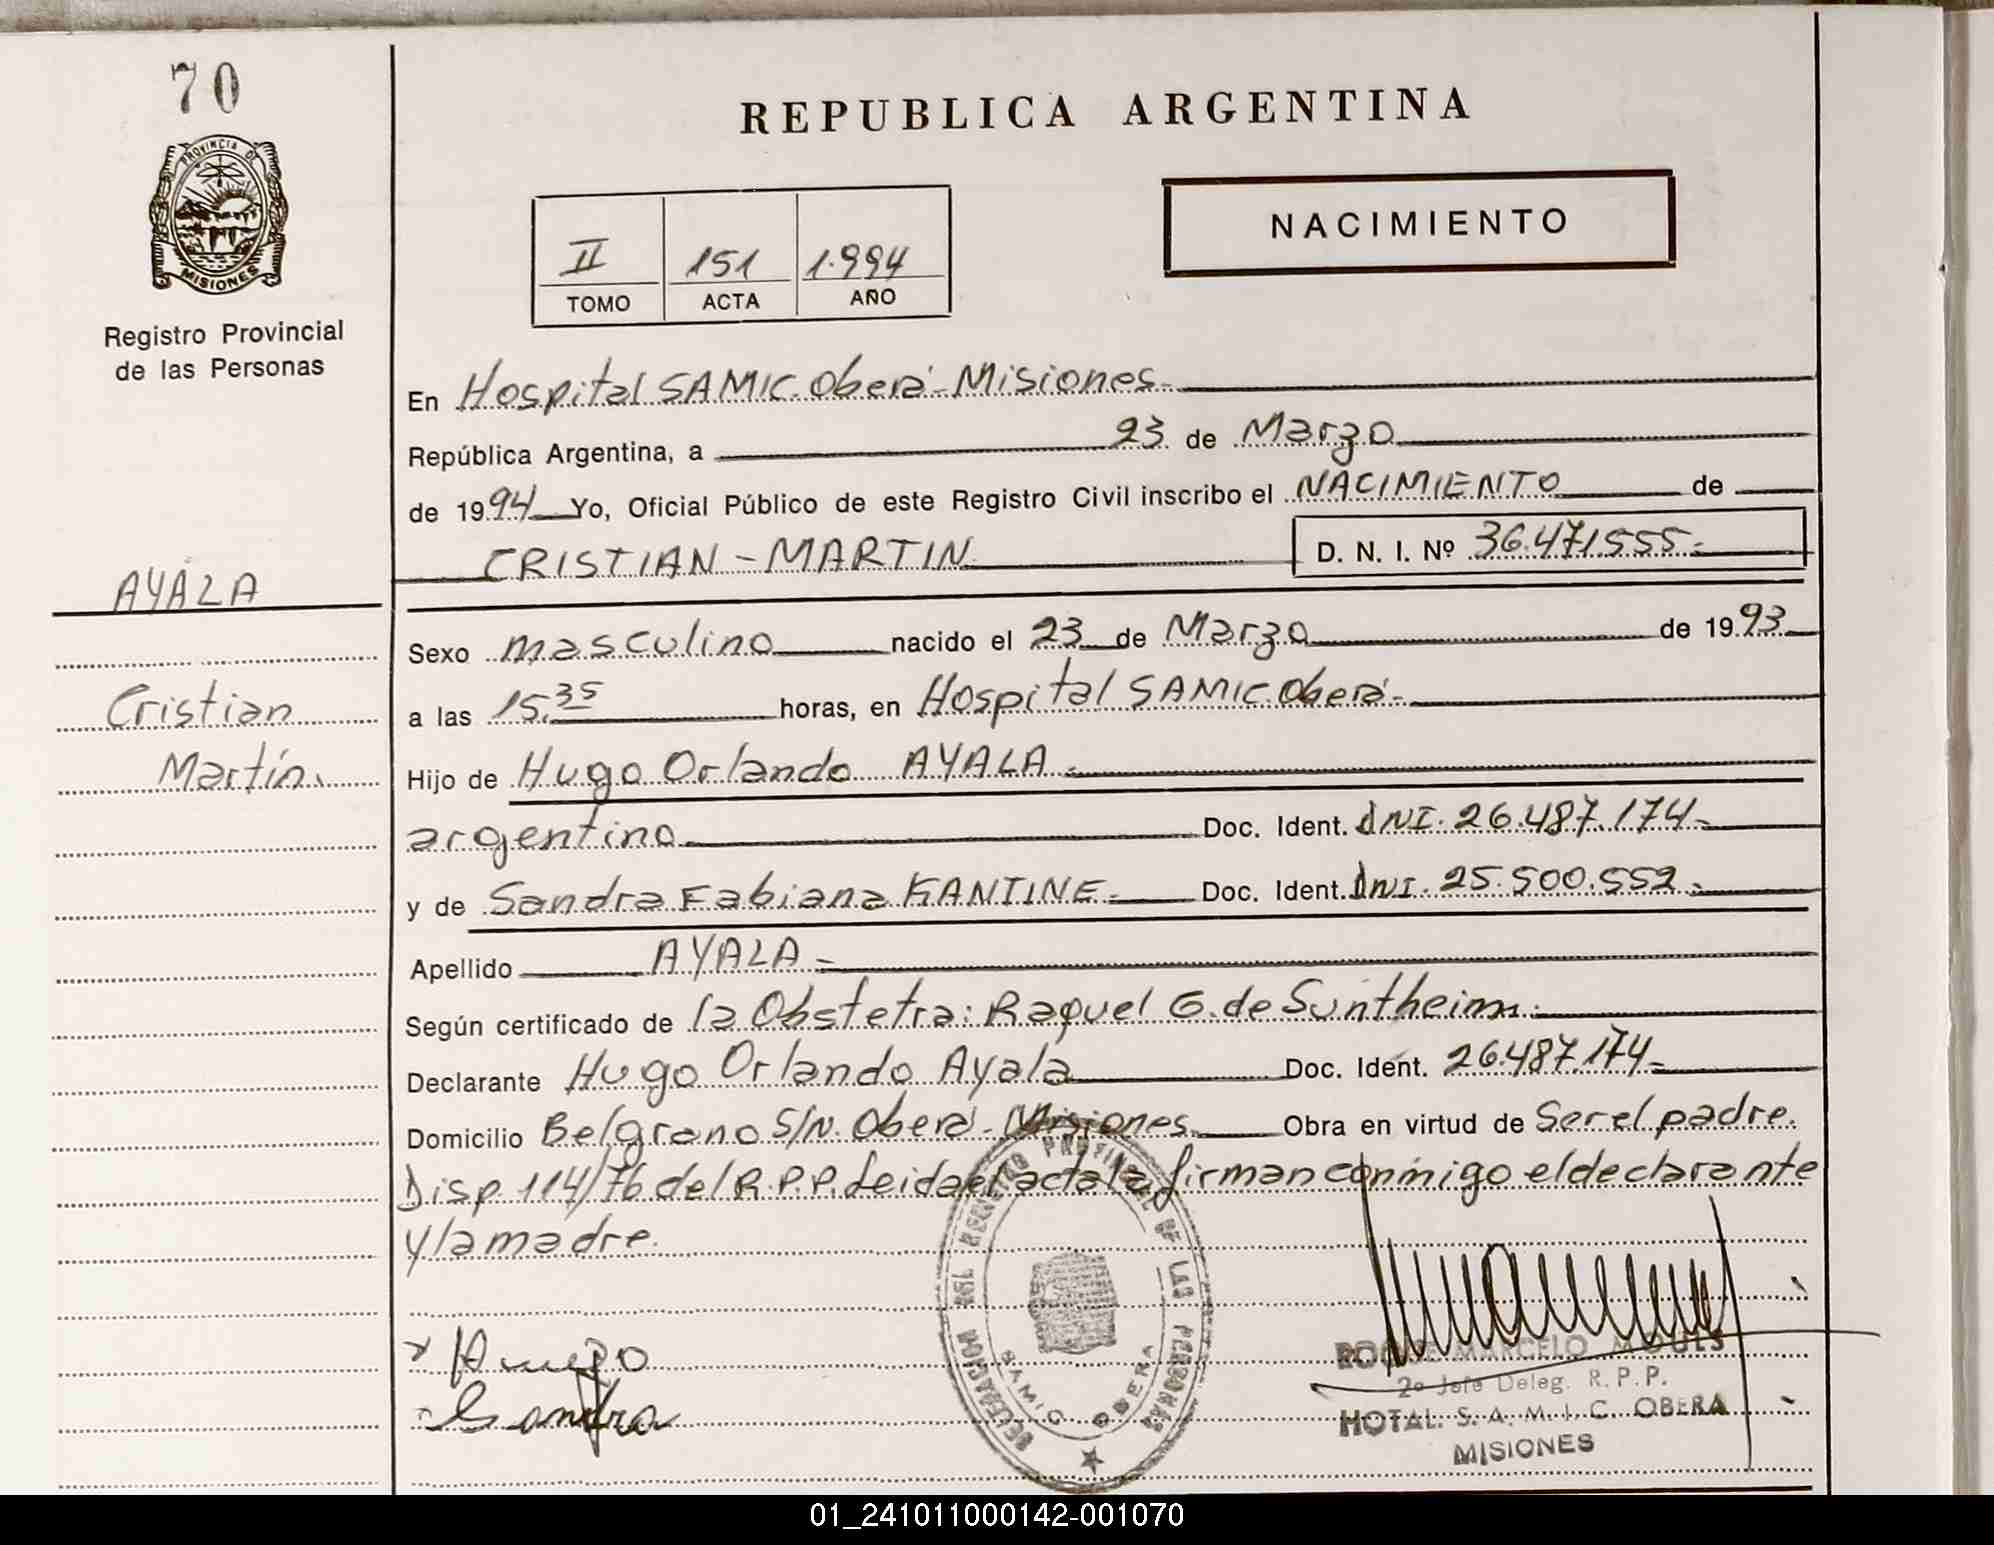 70
PROVINCIA DE
MISIONES
Registro Provincial
de las Personas
AYALA
Cristian
Martín
REPUBLICA ARGENTINA
NACIMIENTO
II 151 1.994
TOMO ACTA AÑO
En Hospital SAMIC. Oberá - Misiones.-
República Argentina, a 23 de Marzo
de 1994 Yo, Oficial Público de este Registro Civil inscribo el NACIMIENTO de
CRISTIAN - MARTIN D. N. I. Nº 36.471.555.-
Sexo masculino nacido el 23 de Marzo de 1993
a las 15.35 horas, en Hospital SAMIC. Oberá.-
Hijo de Hugo Orlando AYALA.-
argentino Doc. Ident. DNI. 26.487.174.-
y de Sandra Fabiana KANTINE.- Doc. Ident. DNI. 25.500.552.-
Apellido AYALA -
Según certificado de la Obstetra: Raquel G. de Suntheim.-
Declarante Hugo Orlando Ayala Doc. Ident. 26.487.174-
Domicilio Belgrano S/N. Oberá - Misiones. Obra en virtud de Ser el padre.
Disp. 114/76 del R.P.P. Leida el acta la firman conmigo el declarante
y la madre.
Sandra
DELEGACION DEL REGISTRO PROVINCIAL DE LAS PERSONAS
SAMIC OBERA
ROQUE MARCELO
2º Jefe Deleg. R. P. P.
HOTAL. S. A. M. I. C. OBERA
MISIONES
01_241011000142-001070